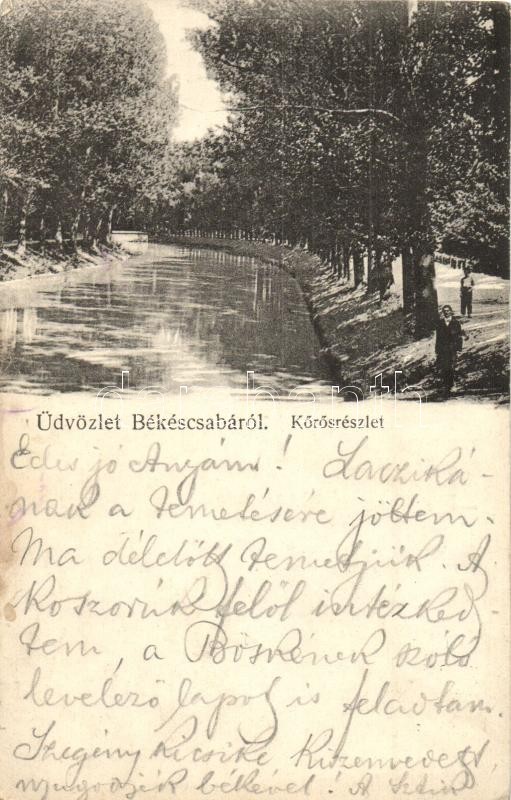 Üdvözlet Békéscsabáról. Kőrösrészlet
Édes jó Anyám! Laczika-
nak a temetésére jöttem.
Ma délelőtt temetjük. A
Koszorúk felől intézked-
tem, a Böskének szóló
levelező lapot is feladtam.
Szegény kicsike kiszenvedett,
nyugodjék békével! A